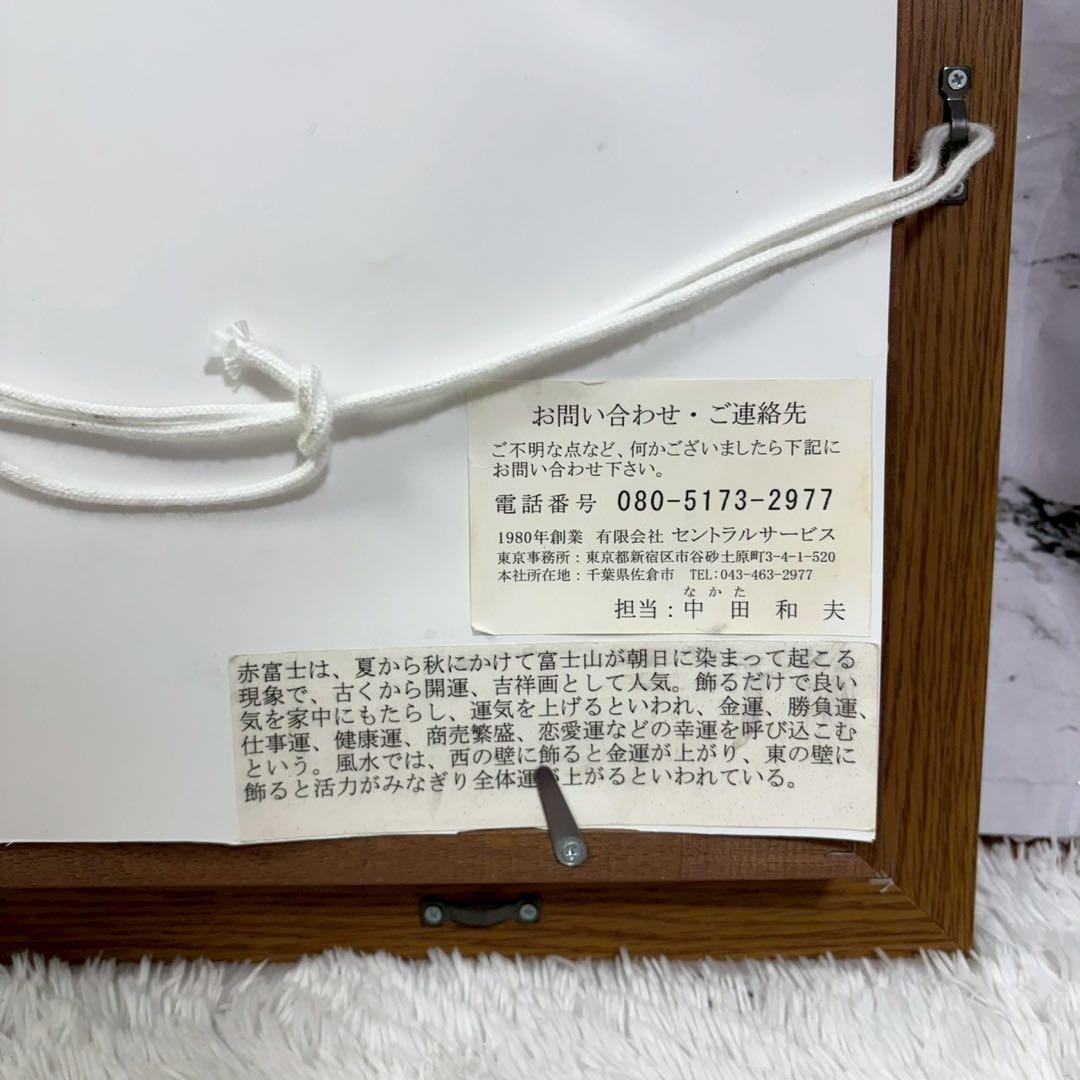 お問い合わせ・ご連絡先
ご不明な点など、何かございましたら下記に
お問い合わせ下さい。
電話番号 080-5173-2977
1980年創業 有限会社 セントラルサービス
東京事務所：東京都新宿区市谷砂土原町3-4-1-520
本社所在地：千葉県佐倉市 TEL:043-463-2977
なかた
担当：中田和夫
赤富士は、夏から秋にかけて富士山が朝日に染まって起こる
現象で、古くから開運、吉祥画として人気。飾るだけで良い
気を家中にもたらし、運気を上げるといわれ、金運、勝負運、
仕事運、健康運、商売繁盛、恋愛運などの幸運を呼び込こむ
という。風水では、西の壁に飾ると金運が上がり、東の壁に
飾ると活力がみなぎり全体運が上がるといわれている。